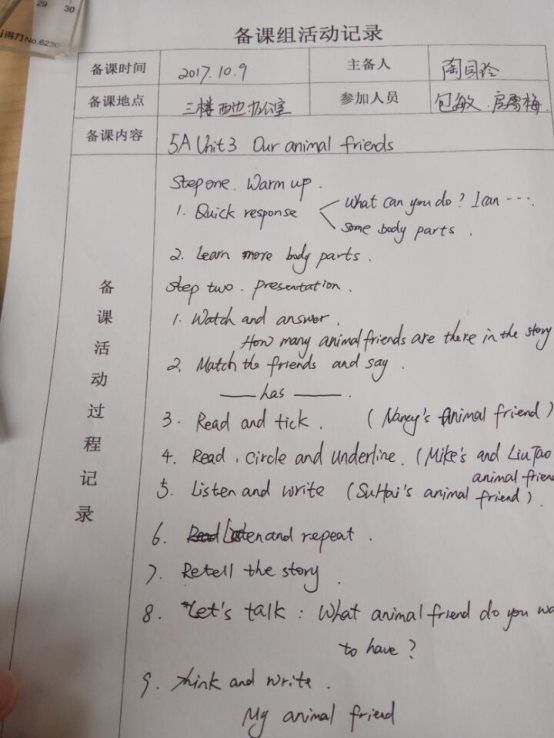 29 30
得力 No.6230
备课组活动记录
备课时间 2017.10.9 主备人
备课地点 三楼西边办公室 参加人员 包敏
备课内容 5A Unit 3 Our animal friends
备课活动过程记录
Step one. Warm up.
1. Quick response
What can you do? I can ....
Some body parts.
2. Learn more body parts.
Step two. presentation.
1. Watch and answer.
How many animal friends are there in the story
2. Match the friends and say.
—— has ——.
3. Read and tick. (Nancy's animal friend)
4. Read, circle and underline. (Mike's and Liu Tao
animal frien
5. Listen and write (Su Hai's animal friend).
6. Listen and repeat.
7. Retell the story.
8. Let's talk: What animal friend do you wa
to have?
9. Think and write.
My animal friend